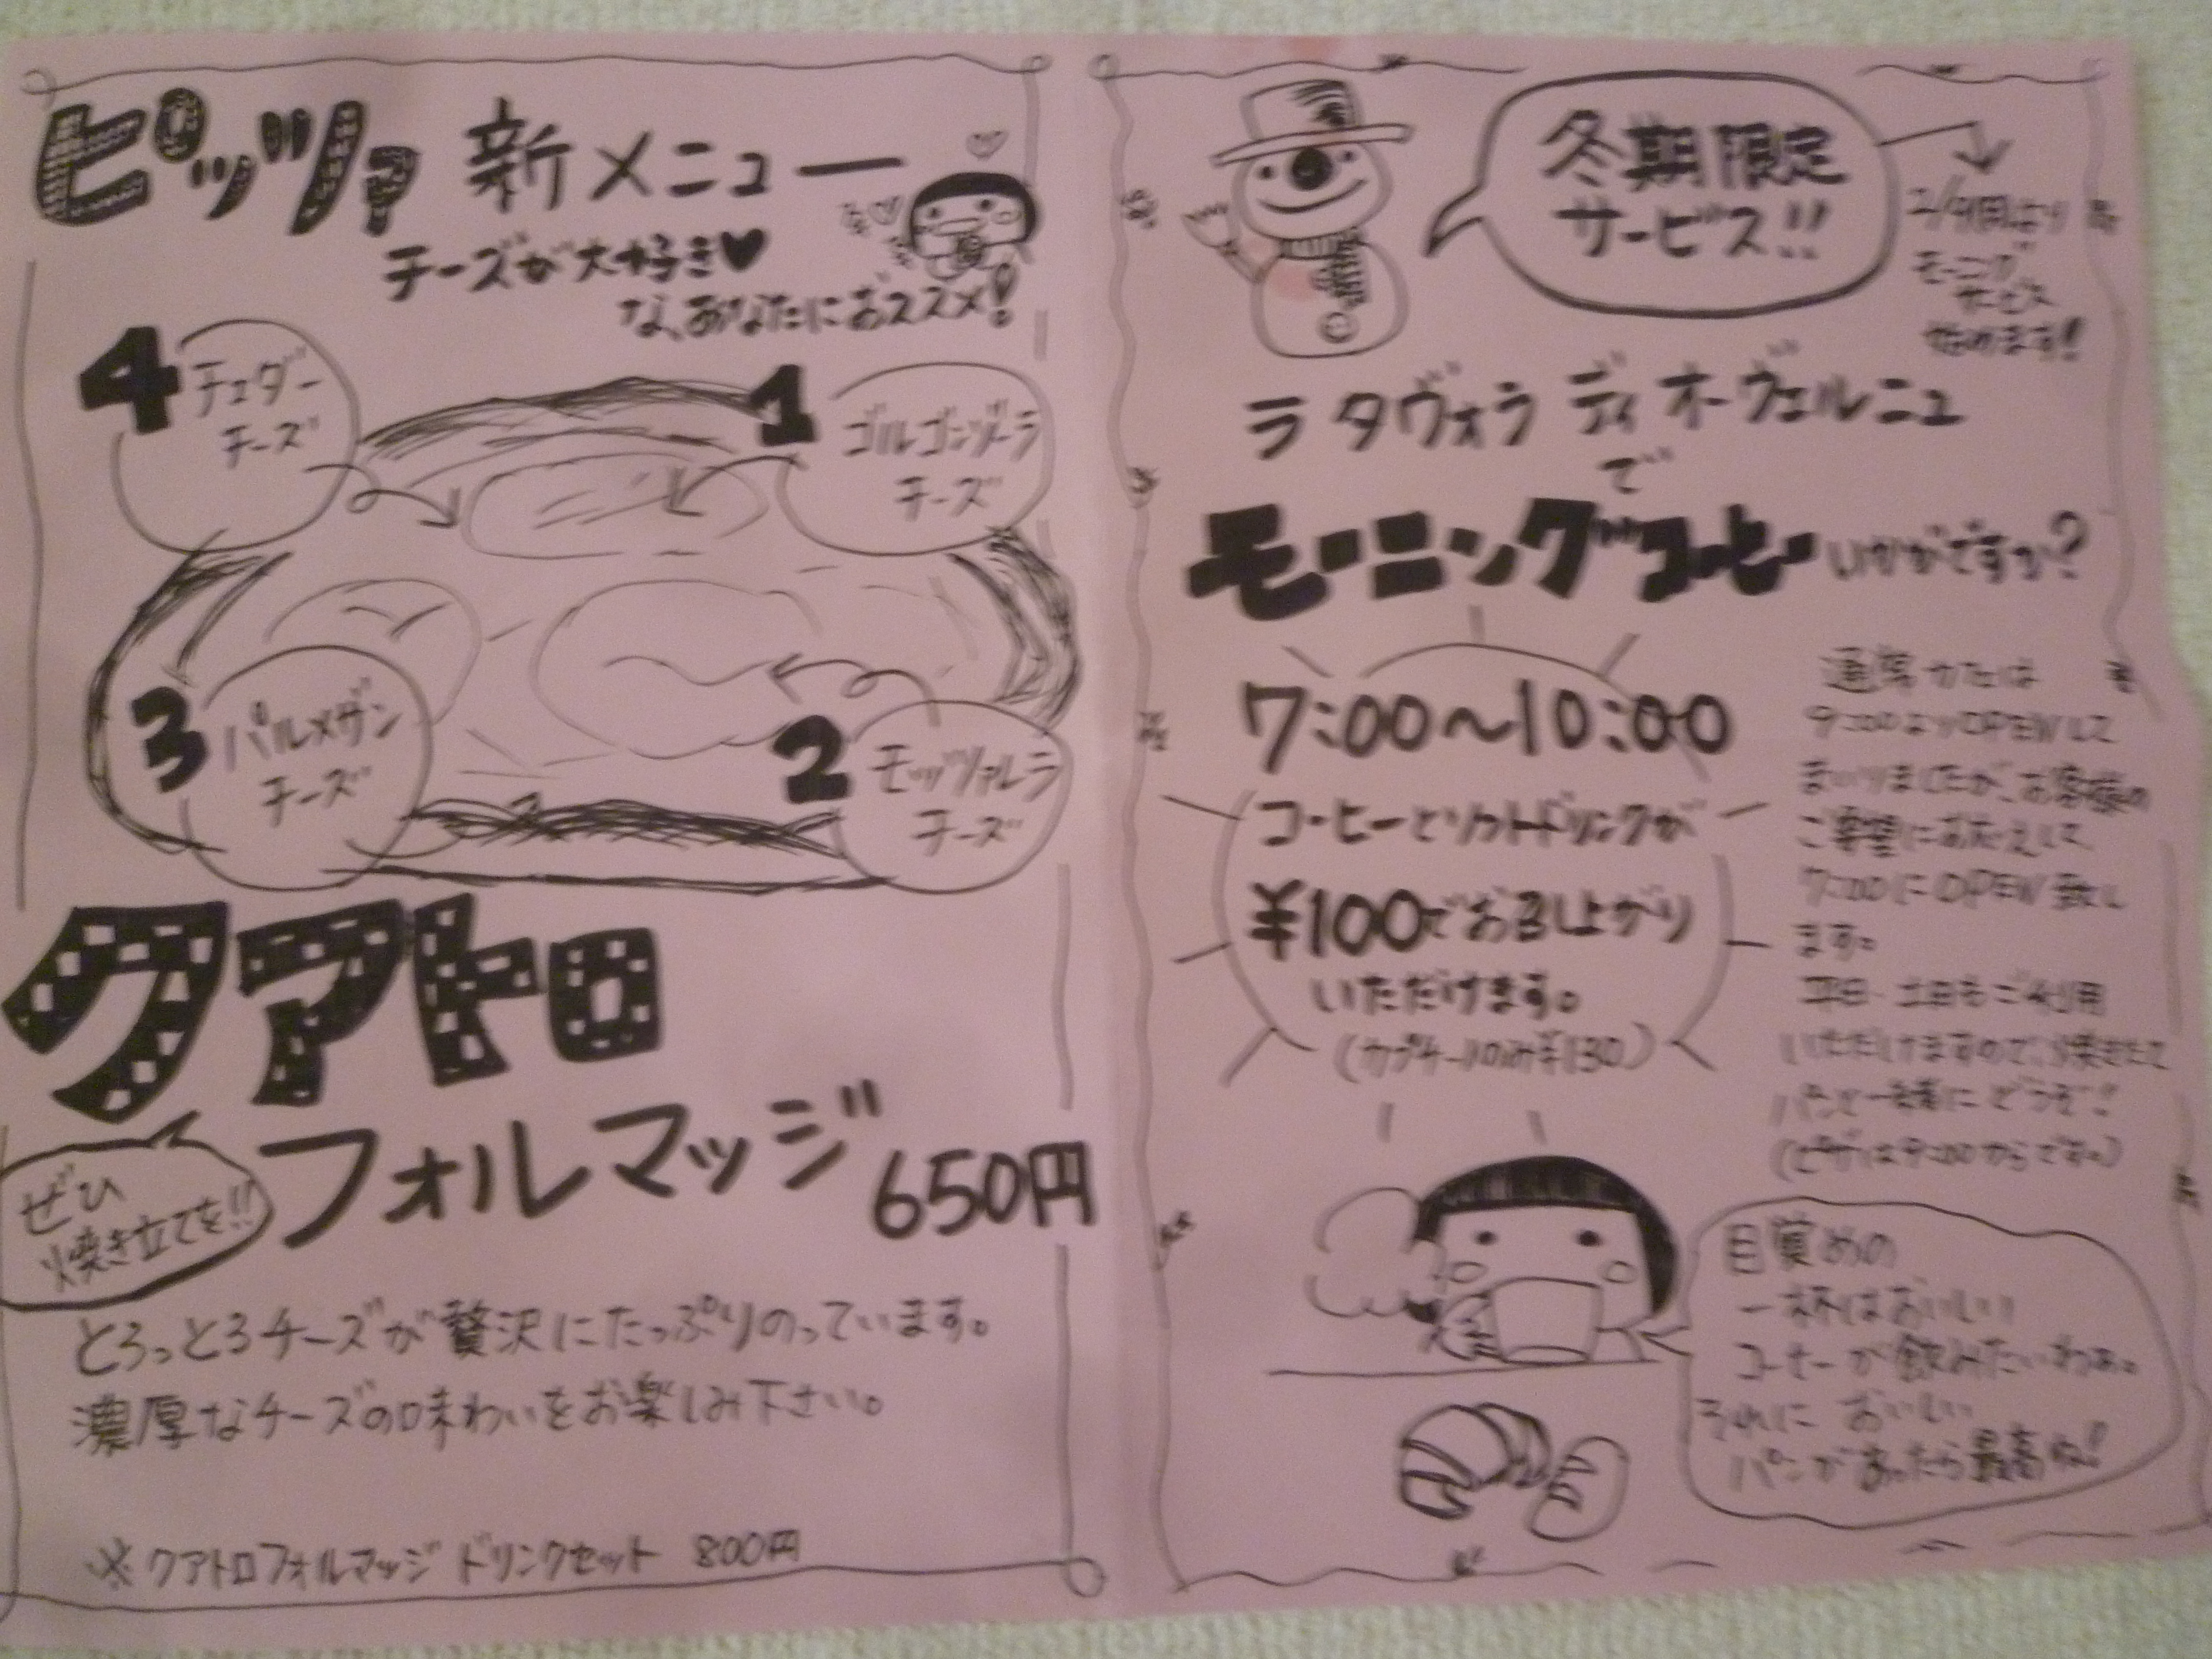 ピッツァ 新メニュー
チーズが大好き♥
な、あなたにおススメ!
4 チェダー
チーズ
1 ゴルゴンゾーラ
チーズ
3 パルメザン
チーズ
2 モッツァルラ
チーズ
クアトロ
フォルマッジ 650円
ぜひ
焼き立てを!!
とろっとろチーズが贅沢にたっぷりのっています。
濃厚なチーズの味わいをお楽しみ下さい。
※クアトロフォルマッジ ドリンクセット 800円
冬期限定
サービス!!
モーニング
サービス
始めます!
ラ タヴォラ ディ オーヴェルニュ
で
モーニングコーヒーいかがですか?
7:00〜10:00
コーヒーとソフトドリンクが
¥100でお召し上がり
いただけます。
(カプチーノのみ¥130)
通常カフェは
9:00よりOPENして
まいりましたが、お客様の
ご要望におこたえして
7:00にOPEN致し
ます。
平日・土日もご利用
いただけますので、お焼きたて
パンと一緒にどうぞ!
(ピザは9:00からです。)
目覚めの
一杯はおいしい
コーヒーが飲みたいわぁ。
それに おいしい
パンがあったら最高ね!